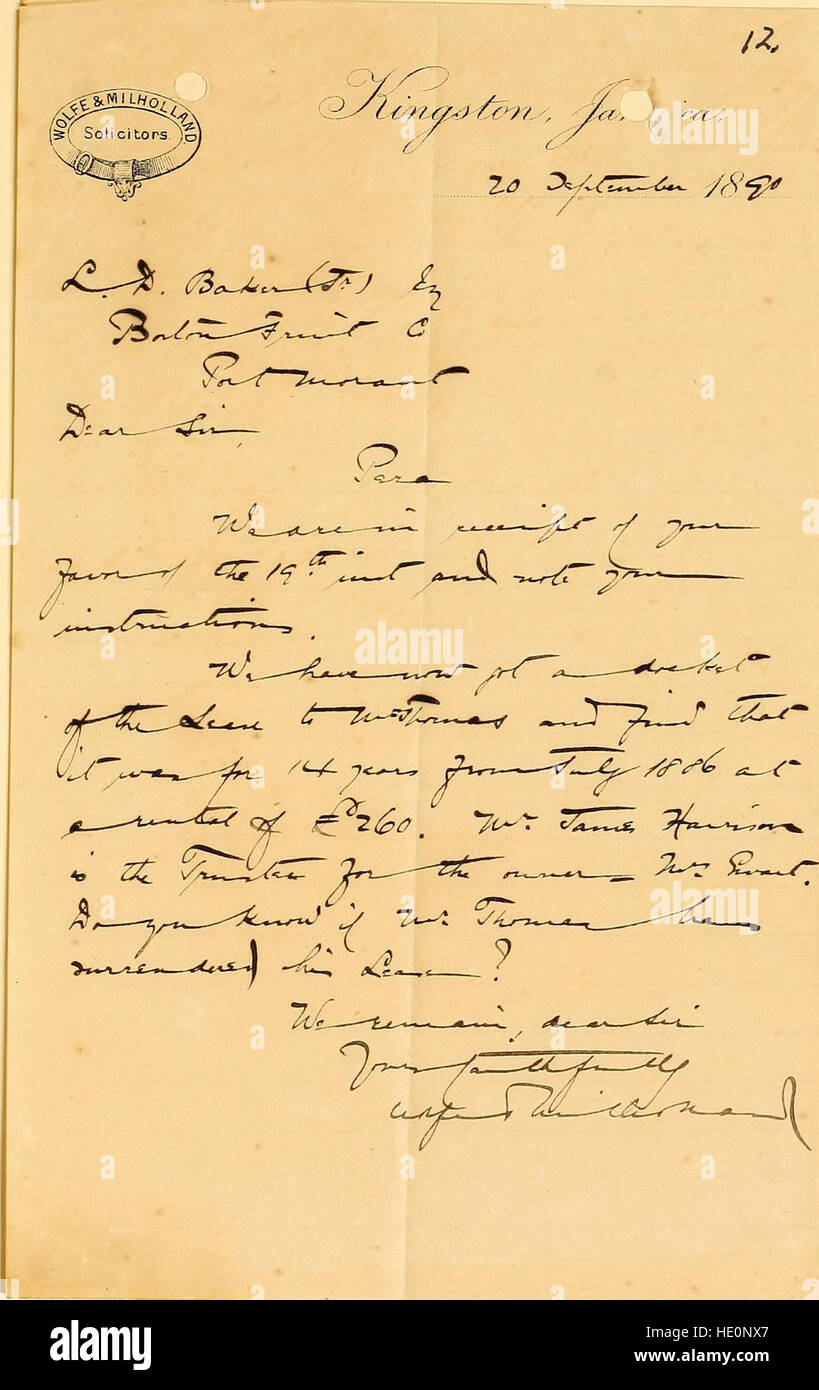 12.
WOLFE & MILHOLLAND
Solicitors.
Kingston, Ja ica.
20 September 1890
L. D. Baker (Jr) Eq
Boston Fruit Co
Port Morant
Dear Sir,
Para
We are in receipt of your
favor of the 19th inst and note your
instructions.
We have now got a docket
of the Lease to Mr Thomas and find that
it was for 14 years from July 1886 at
a rental of £260. Mr. James Harrison
is the Trustee for the owner - Mrs
Do you know if Mr. Thomas has
surrendered his Lease?
We remain, dear Sir
Yours faithfully
Wolfe & Milholland
a
alamy stock photo
alamy
Image ID: HE0NX7
www.alamy.com